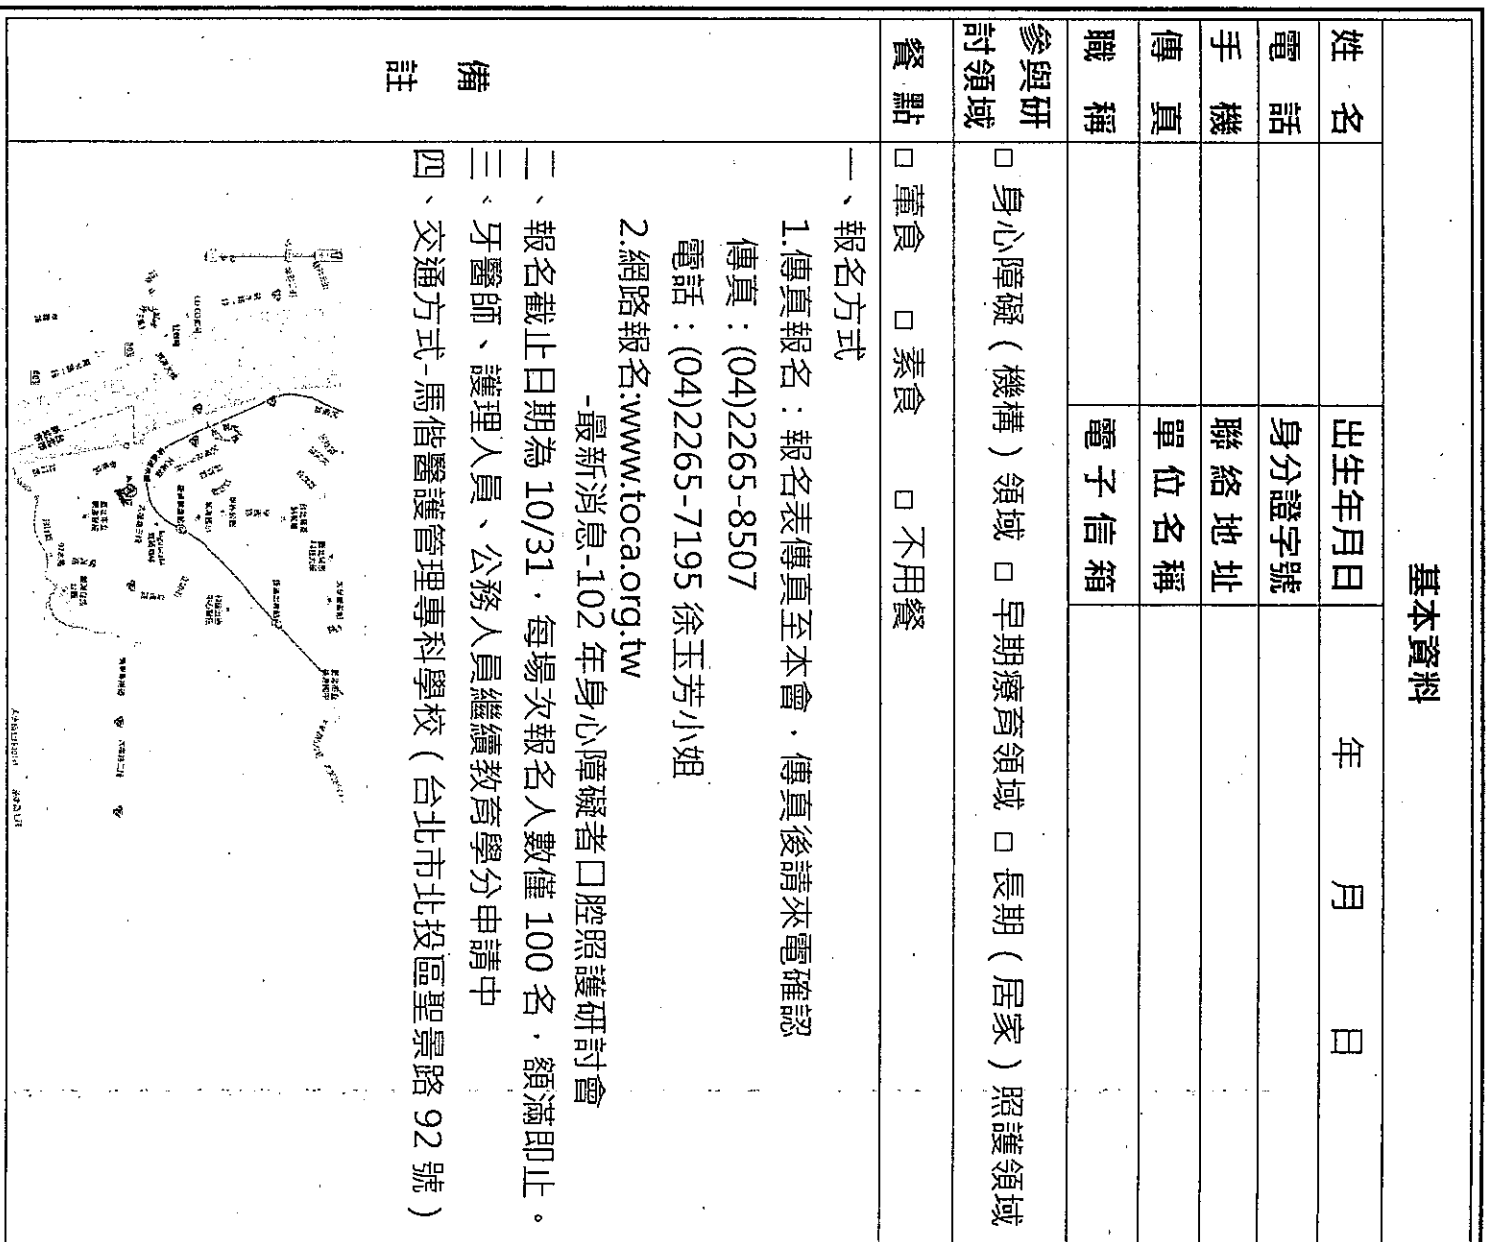 基本資料
姓 名 出生年月日 年 月 日
電 話 身分證字號
手 機 聯絡地址
傳 真 單位名稱
職 稱 電子信箱
參與研討領域 □ 身心障礙（機構）領域 □ 早期療育領域 □ 長期（居家）照護領域
餐 點 □ 葷食 □ 素食 □ 不用餐
備註
一、報名方式
1.傳真報名：報名表傳真至本會，傳真後請來電確認
傳真：(04)2265-8507
電話：(04)2265-7195 徐玉芳小姐
2.網路報名:www.toca.org.tw
-最新消息-102 年身心障礙者口腔照護研討會
二、報名截止日期為 10/31，每場次報名人數僅 100 名，額滿即止。
三、牙醫師、護理人員、公務人員繼續教育學分申請中
四、交通方式-馬偕醫護管理專科學校（台北市北投區聖景路 92 號）